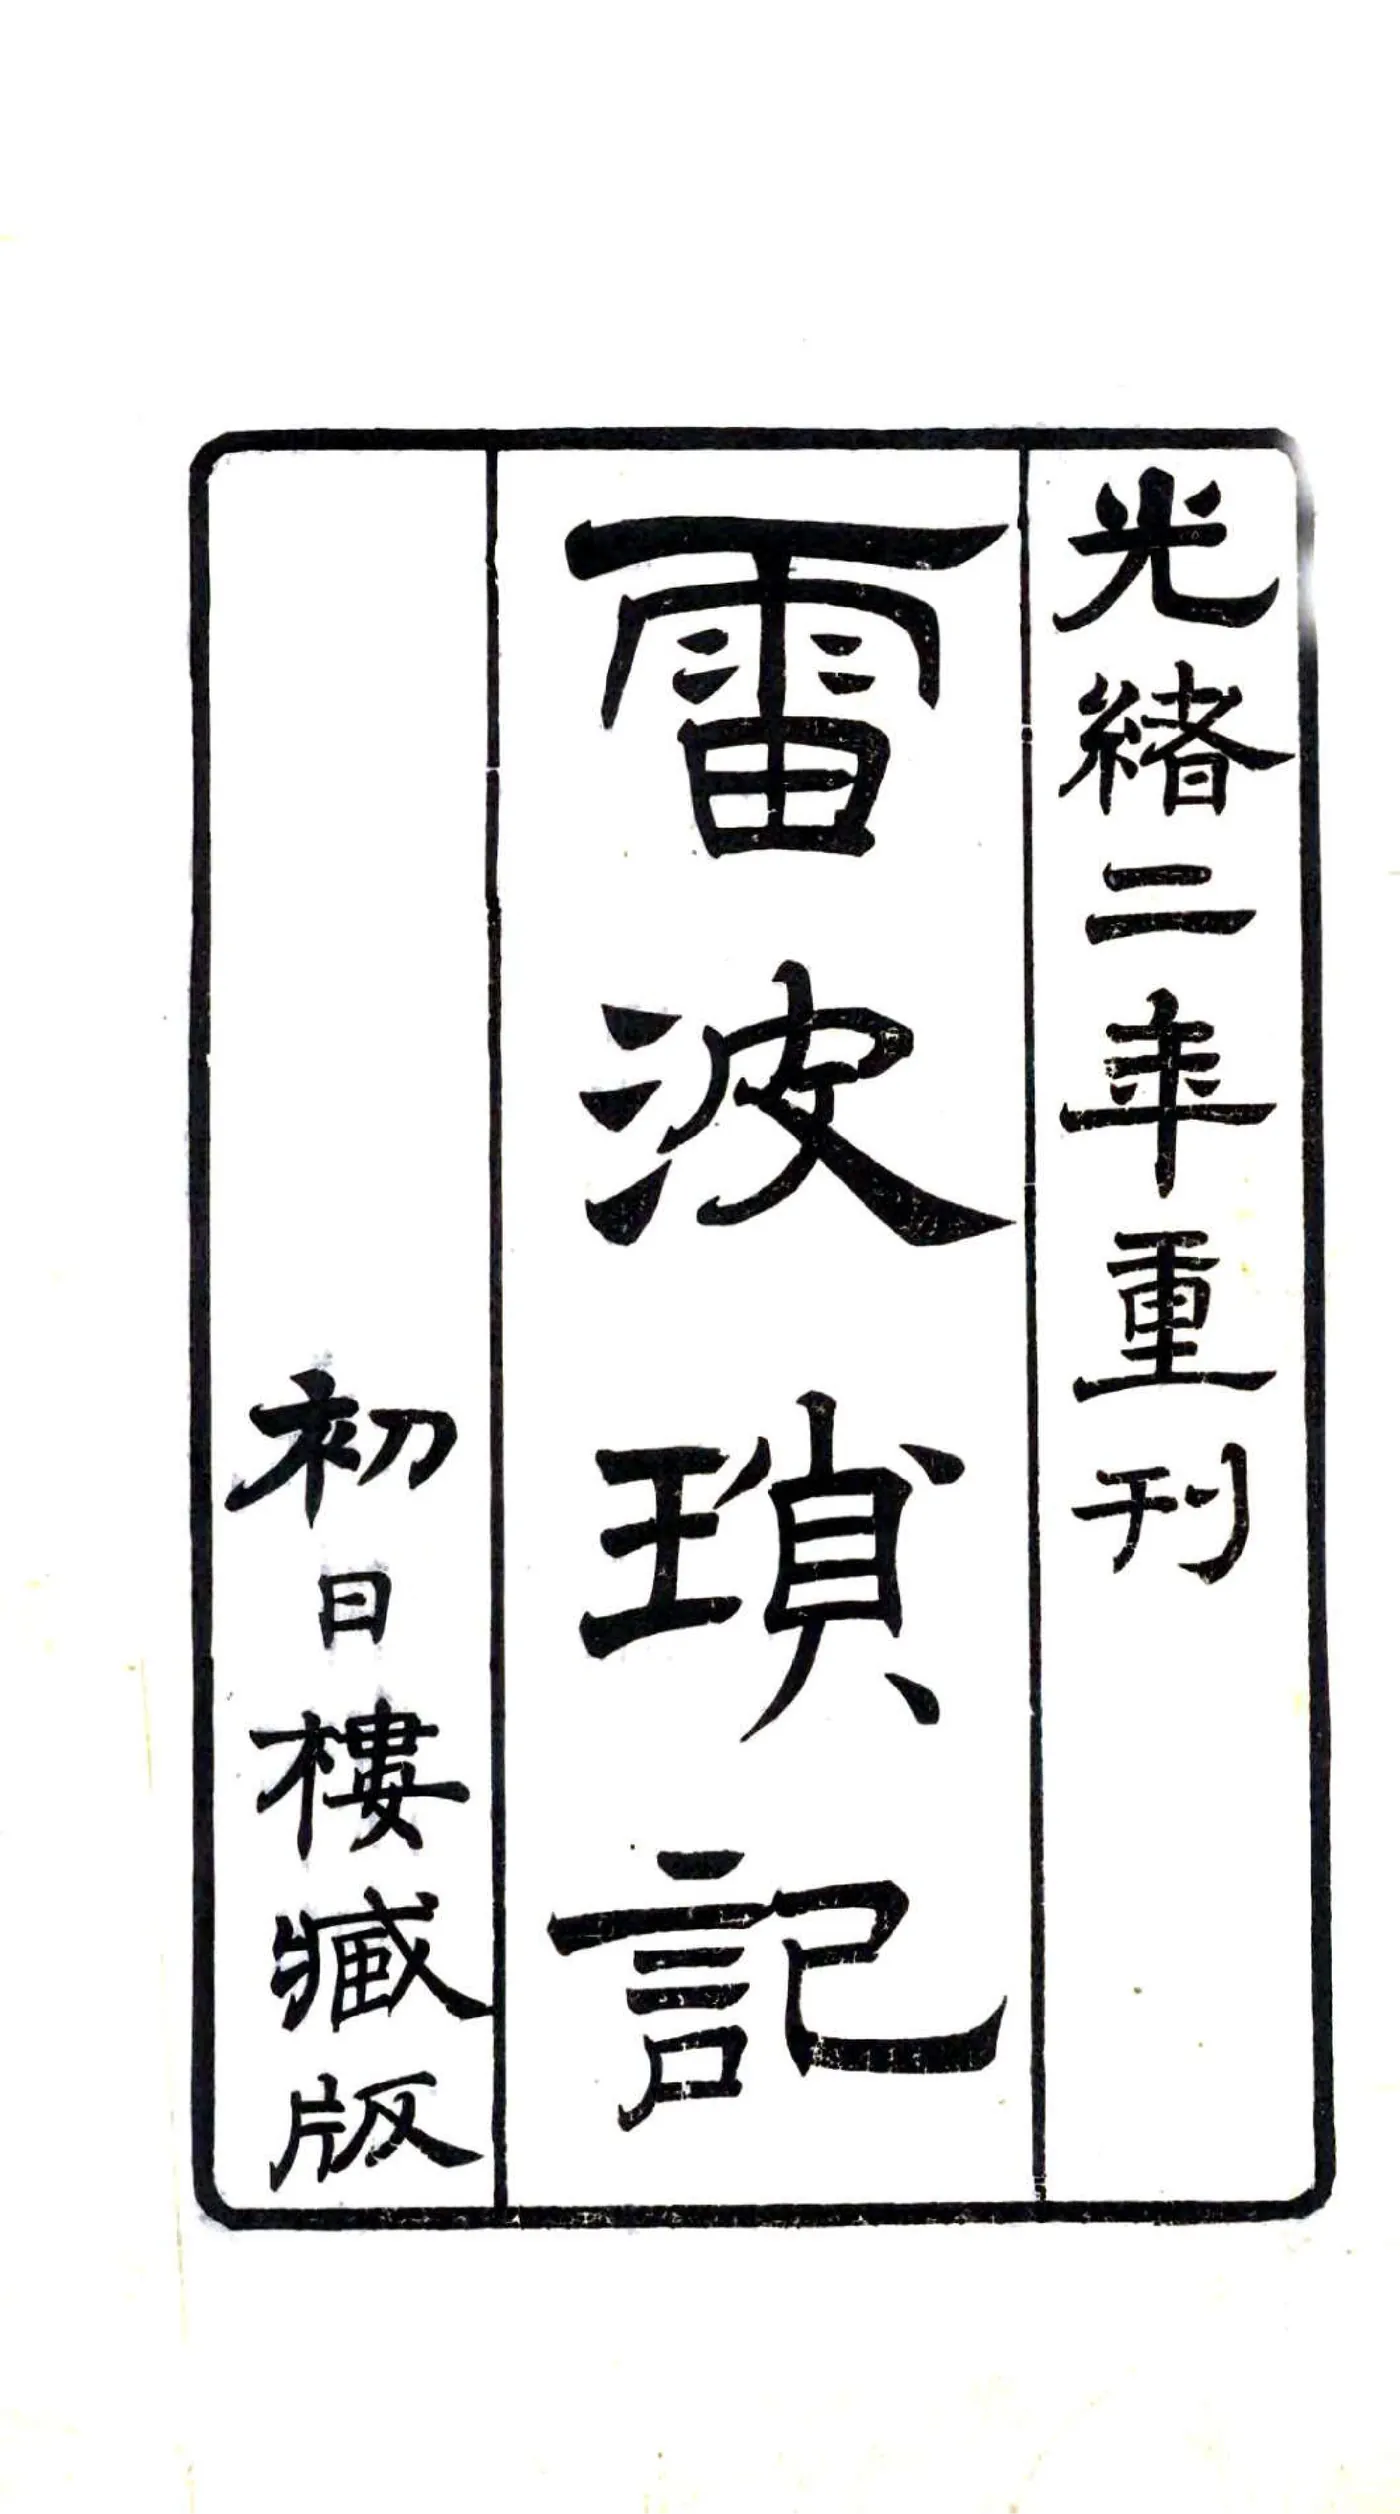 光緒二年重刊
雷波瑣記
初日樓藏版